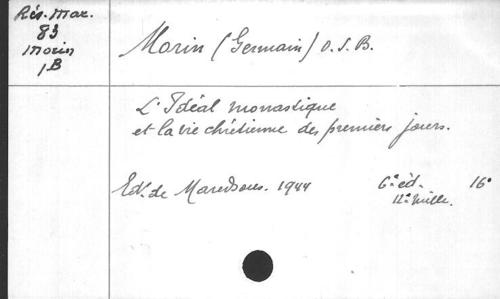 Rés. Mar.
83
Morin
1B
Morin (Germain) O.S.B.
L'Idéal monastique
et la vie chrétienne des premiers jours.
Ed. de Maredsous. 1944 6e éd. 16°
12e mille.